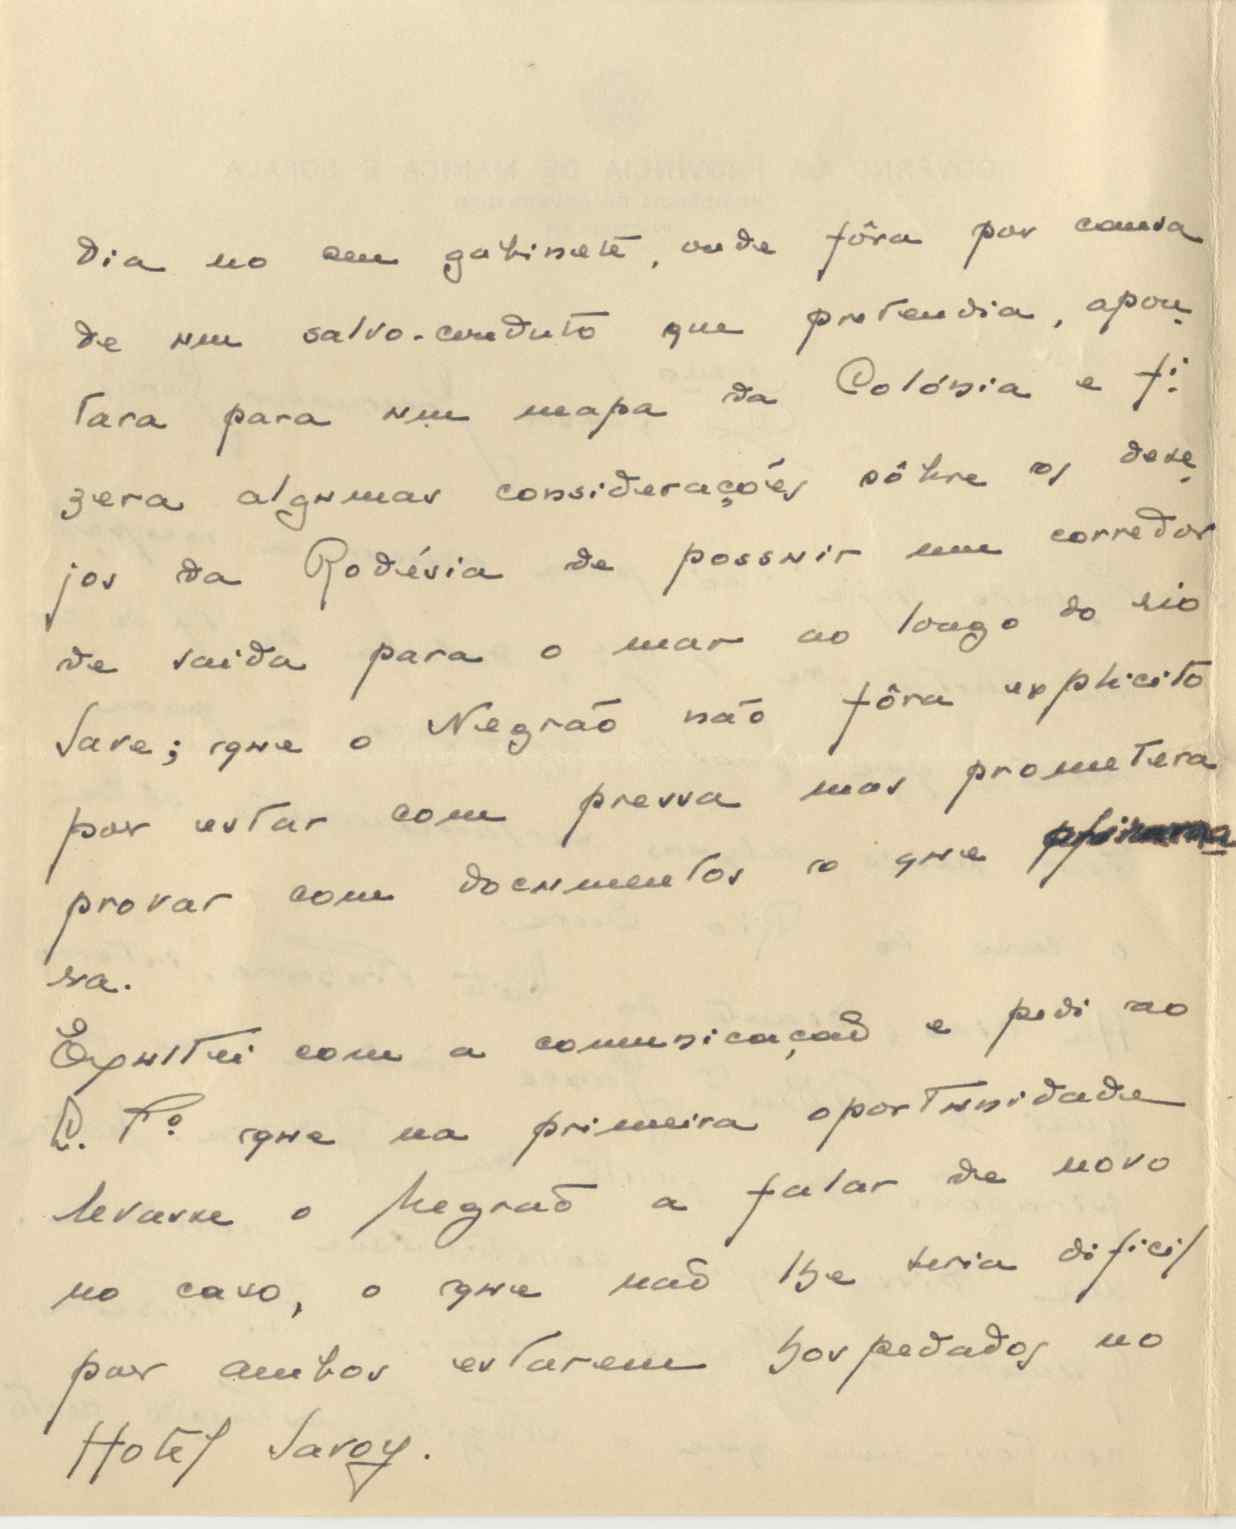 dia no seu gabinete, onde fôra por causa
de um salvo-conduto que pretendia, apon-
tara para um mapa da Colónia e fi-
zera algumas considerações sôbre os dese-
jos da Rodésia de possuir um corredor
de saida para o mar ao longo do rio
Save; que o Negrão não fôra explicito
por estar com pressa mas prometera
provar com documentos o que
ra.
Exultei com a comunicação e pedi ao
que na primeira oportunidade
levasse o Negrão a falar de novo
no caso, o que não lhe seria dificil
por ambos estarem hospedados no
Hotel Savoy.